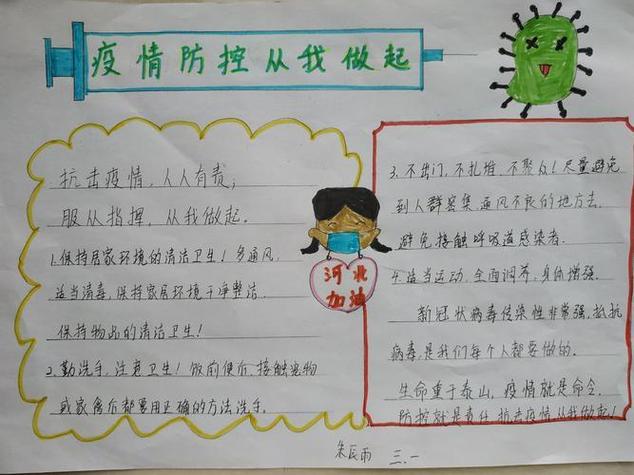 疫情防控从我做起
抗击疫情，人人有责；
服从指挥，从我做起．
1.保持居家环境的清洁卫生！多通风，
适当消毒，保持家居环境干净整洁．
保持物品的清洁卫生！
2.勤洗手，注意卫生！饭前便后，接触宠物
或家禽后都要用正确的方法洗手．
河北
加油
3.不出门，不扎堆，不聚众！尽量避免
到人群密集通风不良的地方去．
避免接触呼吸道感染者．
4.适当运动，全面调养，身体增强．
新冠状病毒传染性非常强，抵抗
病毒，是我们每个人都要做的．
生命重于泰山，疫情就是命令，
防控就是责任，抗击疫情，从我做起！
朱辰雨 三．一